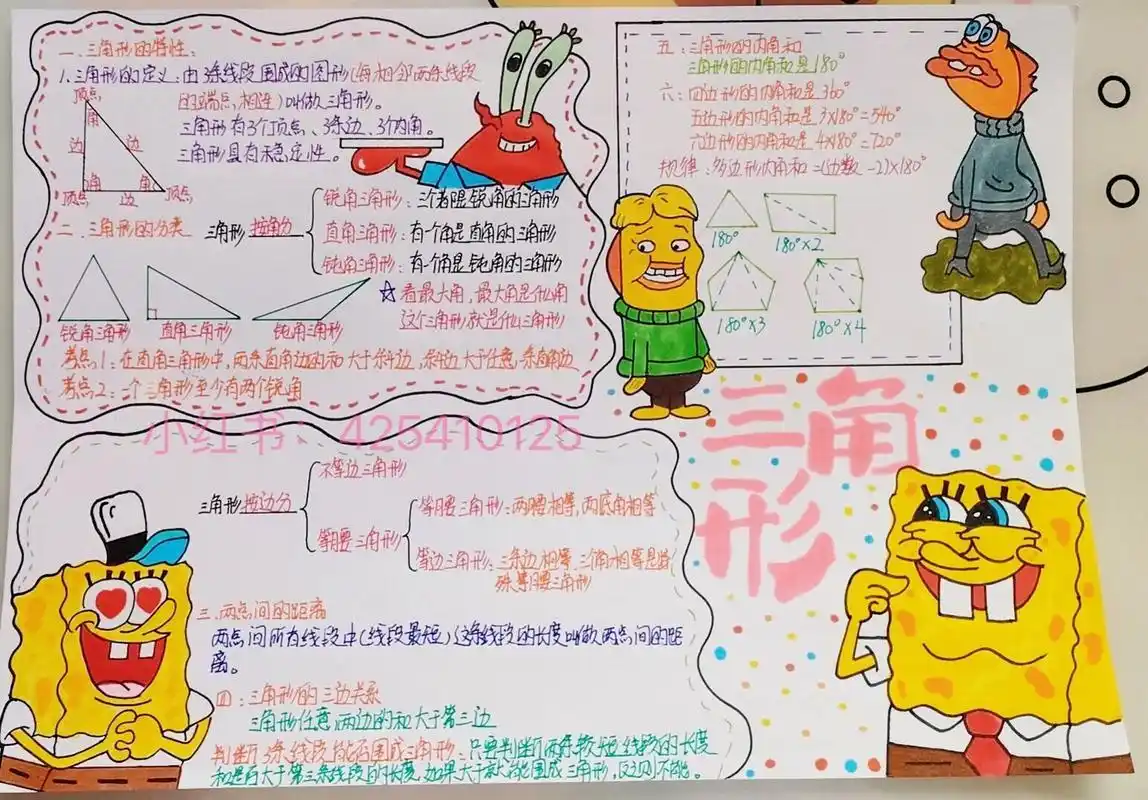 一、三角形的特性：
1.三角形的定义：由3条线段围成的图形（每相邻两条线段
的端点相连）叫做三角形。
三角形有3个顶点、3条边、3个内角。
三角形具有稳定性。
顶点
角
边
边
角
角
顶点
边
顶点
二、三角形的分类
三角形 按角分
锐角三角形：三个都是锐角的三角形
直角三角形：有个角是直角的三角形
钝角三角形：有一个角是钝角的三角形
☆看最大角，最大角是什么角
这个三角形就是什么三角形
锐角三角形
直角三角形
钝角三角形
考点1：在直角三角形中，两条直角边的和大于斜边，斜边大于任意一条直角边
考点2：一个三角形至少有两个锐角
小红书：425410125
三角形按边分
不等边三角形
等腰三角形
等腰三角形：两腰相等，两底角相等
等边三角形：三条边相等、三个角相等是特
殊等腰三角形
三、两点间的距离
两点间所有线段中（线段最短）这条线段的长度叫做两点间的距
离。
四：三角形的三边关系
三角形任意两边的和大于第三边
判断3条线段能否围成三角形：只要判断两条较短线段的长度
和是否大于第三条线段的长度，如果大于就能围成三角形，反之则不能。
五：三角形的内角和
三角形的内角和是180°
六：四边形的内角和是360°
五边形的内角和是3×180°=540°
六边形的内角和是4×180°=720°
规律：多边形内角和=(边数-2)×180°
180°
180°×2
180°×3
180°×4
三角
形